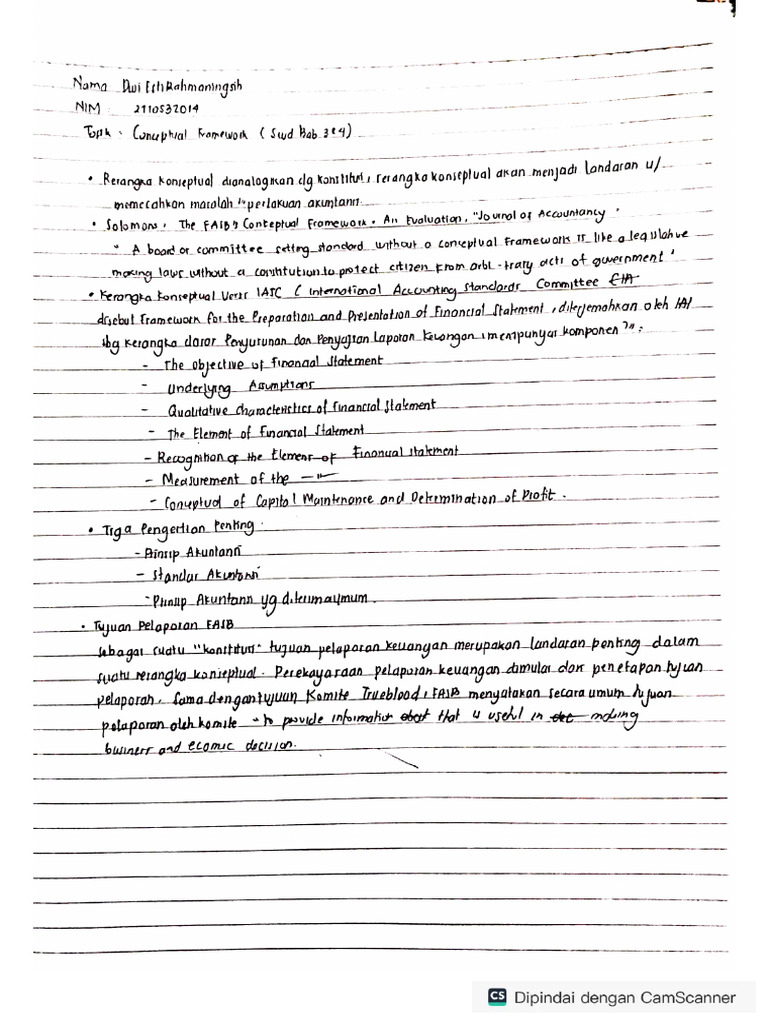 Nama Dwi Esti Rahmaningsih
NIM : 2110532014
Topik : Conceptual Framework ( Swd Bab 3 & 4)
• Rerangka konseptual dianalogikan dg konstitusi, rerangka konseptual akan menjadi landasan u/
memecahkan masalah" perlakuan akuntansi.
• Solomons, The FASB's Conteptual Framework. An Evaluation, "Journal of Accountancy"
" A board or committee setting standard without a conceptual framework is like a legislative
making laws without a constitution to protect citizen from arbi-trary acts of government "
• Kerangka Konseptual Versi IASC ( International Accounting Standards Committee
disebut Framework for the Preparation and Presentation of Financial Statement, diterjemahkan oleh IAI
sbg kerangka dasar Penyusunan dan Penyajian Laporan Keuangan, mempunyai komponen"
- The objective of Financial Statement
- Underlying Assumptions
- Qualitative Characteristics of Financial Statement
- The Element of Financial Statement
- Recognition of the Element of Financial statement
- Measurement of the —"—
- Conceptual of Capital Maintenance and Determination of Profit.
• Tiga Pengertian Penting.
- Prinsip Akuntansi
- Standar Akuntansi
- Prinsip Akuntansi yg diterima umum.
• Tujuan Pelaporan FASB
sebagai suatu "konstitusi" tujuan pelaporan keuangan merupakan landasan penting dalam
suatu rerangka konseptual. Perekayasaan pelaporan keuangan dimulai dari penetapan tujuan
pelaporan. Sama dengan tujuan Komite Trueblood, FASB menyatakan secara umum tujuan
pelaporan oleh komite "to provide information that is useful in making
business and ecomic decision.
CS Dipindai dengan CamScanner